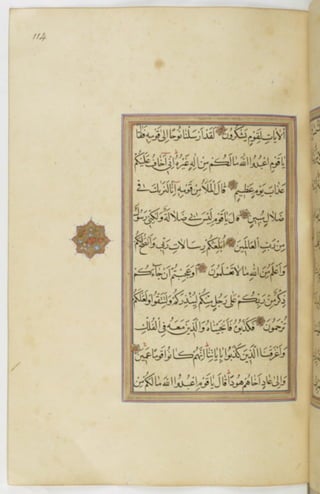 114
الآيات لقوم يشكرون لقد ارسلنا نوحا الى قومه فقال
يا قوم اعبدوا الله مالكم من اله غيره انى اخاف عليكم
عذاب يوم عظيم قال الملأ من قومه انا لنريك فى
ضلال مبين قال يا قوم ليس بى ضلالة ولكنى رسول
من رب العالمين ابلغكم رسالات ربى وانصح لكم
واعلم من الله ما لا تعلمون اوعجبتم ان جاءكم
ذكر من ربكم على رجل منكم لينذركم ولتتقوا ولعلكم
ترحمون فكذبوه فانجيناه والذين معه فى الفلك
واغرقنا الذين كذبوا باياتنا انهم كانوا قوما عمين
والى عاد اخاهم هودا قال يا قوم اعبدوا الله مالكم من